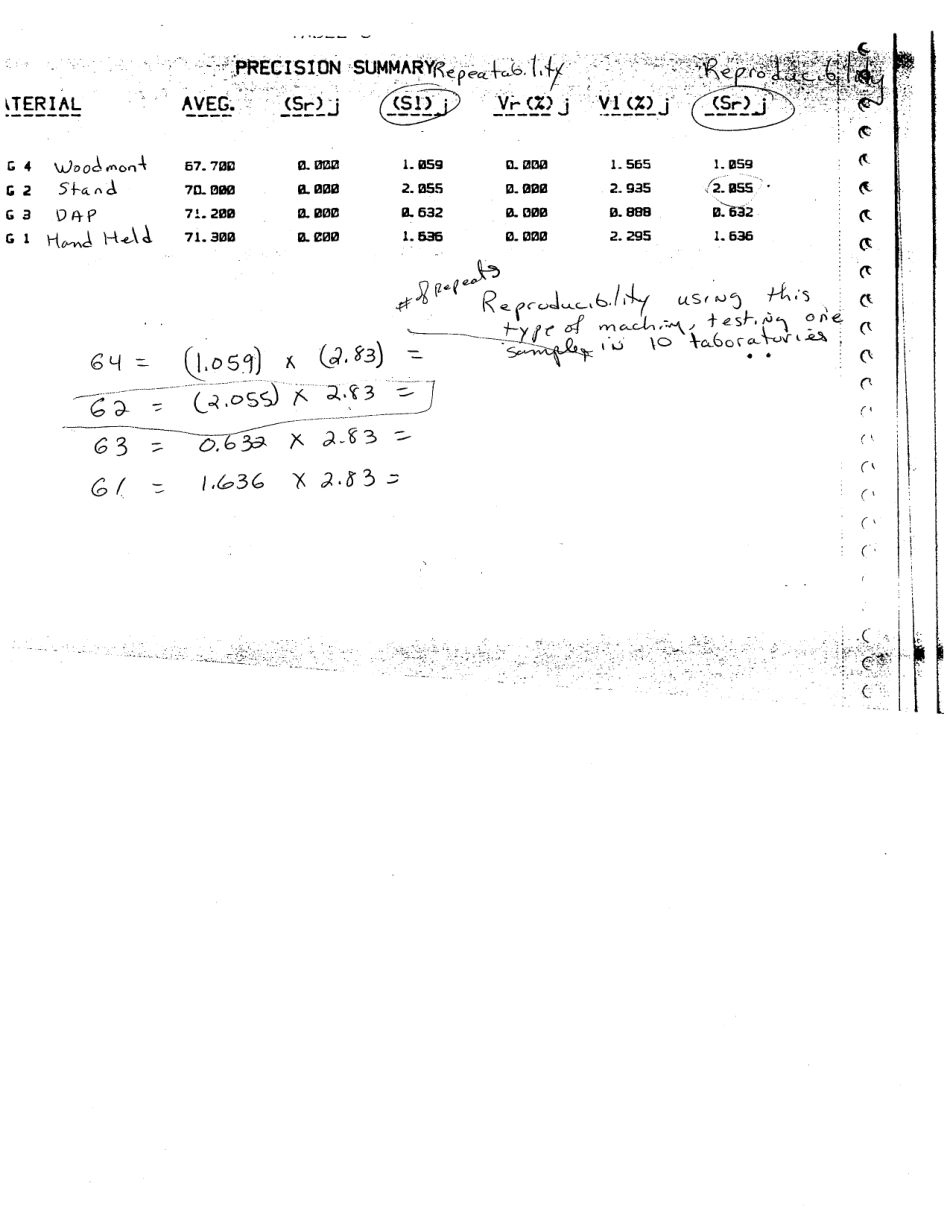 PRECISION SUMMARY Repeatability Reproducibility
ATERIAL AVEG. (Sr)j (Sl)j Vr(%)j Vl(%)j (Sr)j
G 4 Woodmont 67.700 0.000 1.059 0.000 1.565 1.059
G 2 Stand 70.000 0.000 2.055 0.000 2.935 2.055
G 3 DAP 71.200 0.000 0.632 0.000 0.888 0.632
G 1 Hand Held 71.300 0.000 1.636 0.000 2.295 1.636
# of Repeats
Reproducibility using this
type of machin, testing one
sample in 10 laboratories
G4 = (1.059) x (2.83) =
G2 = (2.055) x 2.83 =
G3 = 0.632 x 2.83 =
G1 = 1.636 x 2.83 =